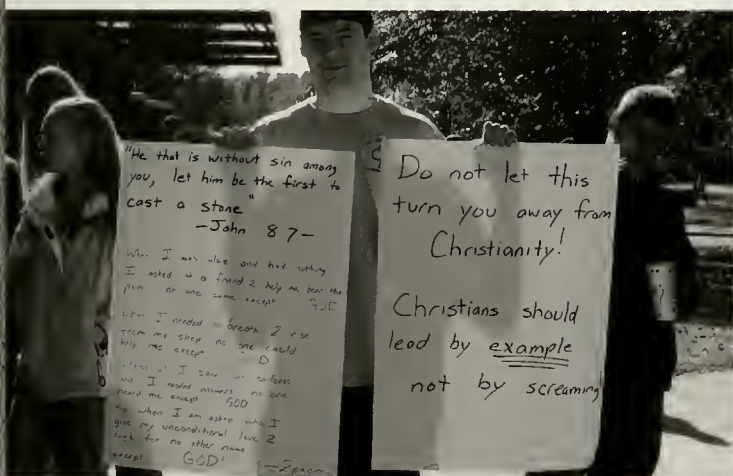 "He that is without sin among
you, let him be the first to
cast a stone"
-John 8 7-
When I was alive and had nothing
I asked 4 a friend 2 help me bear the
pain no one came except GOD
When I needed a breath 2 rise
from my sleep no one could
help me except
I saw sadness
I needed answers no one
heard me except GOD
So when I am asked who I
give my unconditional love 2
look for no other name
except GOD!
-2pac
Do not let this
turn you away from
Christianity!
Christians should
lead by example
not by screaming